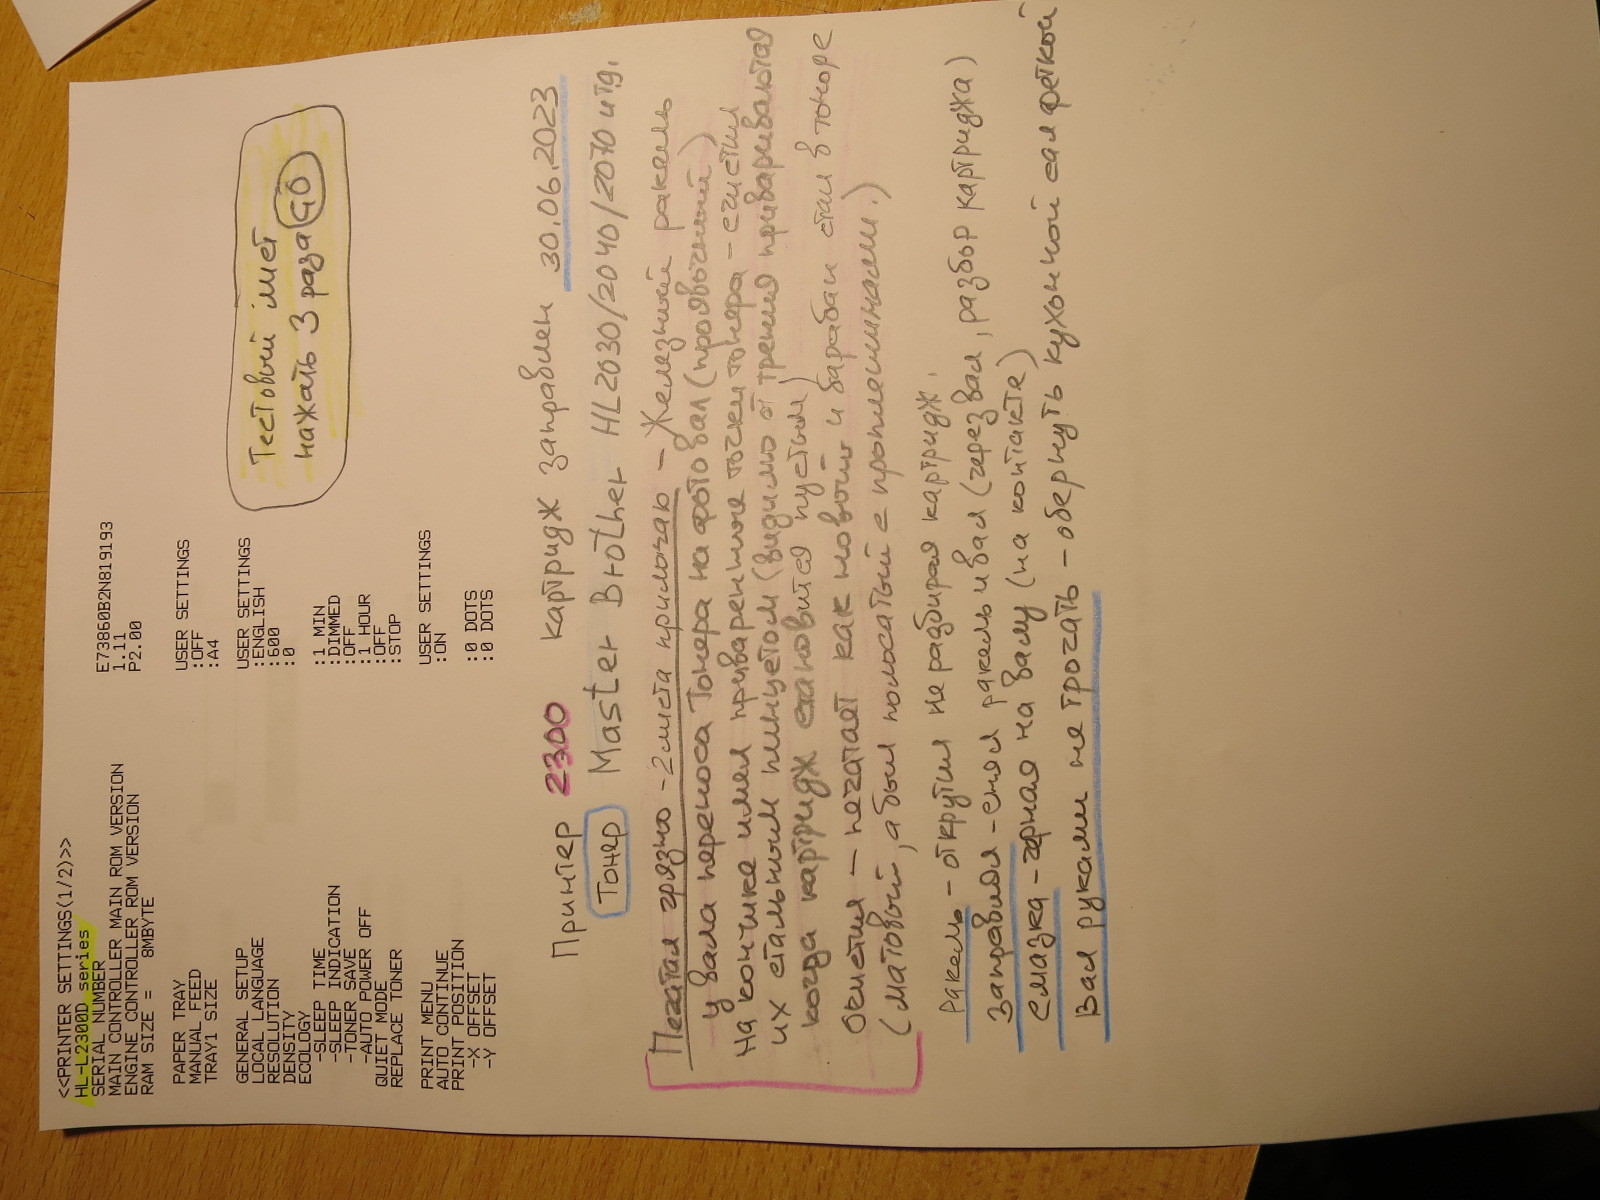 <<PRINTER SETTINGS(1/2)>>
HL-L2300D series
SERIAL NUMBER E73860B2N819193
MAIN CONTROLLER MAIN ROM VERSION 1.11
ENGINE CONTROLLER ROM VERSION P2.00
RAM SIZE = 8MBYTE
PAPER TRAY USER SETTINGS
MANUAL FEED :OFF
TRAY1 SIZE :A4
GENERAL SETUP USER SETTINGS
LOCAL LANGUAGE :ENGLISH
RESOLUTION :600
DENSITY :0
ECOLOGY
-SLEEP TIME :1 MIN
-SLEEP INDICATION :DIMMED
-TONER SAVE :OFF
-AUTO POWER OFF :1 HOUR
QUIET MODE :OFF
REPLACE TONER :STOP
PRINT MENU USER SETTINGS
AUTO CONTINUE :ON
PRINT POSITION
-X OFFSET :0 DOTS
-Y OFFSET :0 DOTS
Тестовый лист
нажать 3 раза GO
Принтер 2300 картридж заправлен 30.06.2023
Тонер Master Brother HL2030/2040/2070 и тд.
Печатал грязно - 2 листа прилагаю - Железный ракель
у вала переноса тонера на фотовал (проявочный)
на кончике имел приваренные точки тонера - счистил
их стальным пинцетом (видимо от трения привариваются
когда картридж становится пустым)
Очистил - печатает как новый и барабан стал в тонере
(матовый, а был полосатый с проплешинами.)
Ракель - открутил не разбирая картридж.
Заправлял - снял ракель и вал (через вал, разбор картриджа)
Смазка - черная на валу (на контакте)
Вал руками не трогать - обернуть кухонной салфеткой